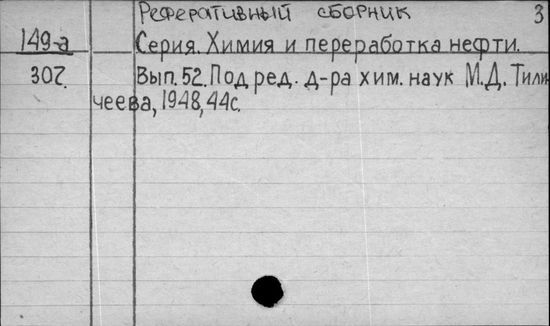 Реферативный сборник 3
149-а Серия. Химия и переработка нефти.
307. Вып. 52. Под ред. д-ра хим. наук М.Д. Тили-
чеева, 1948, 44с.